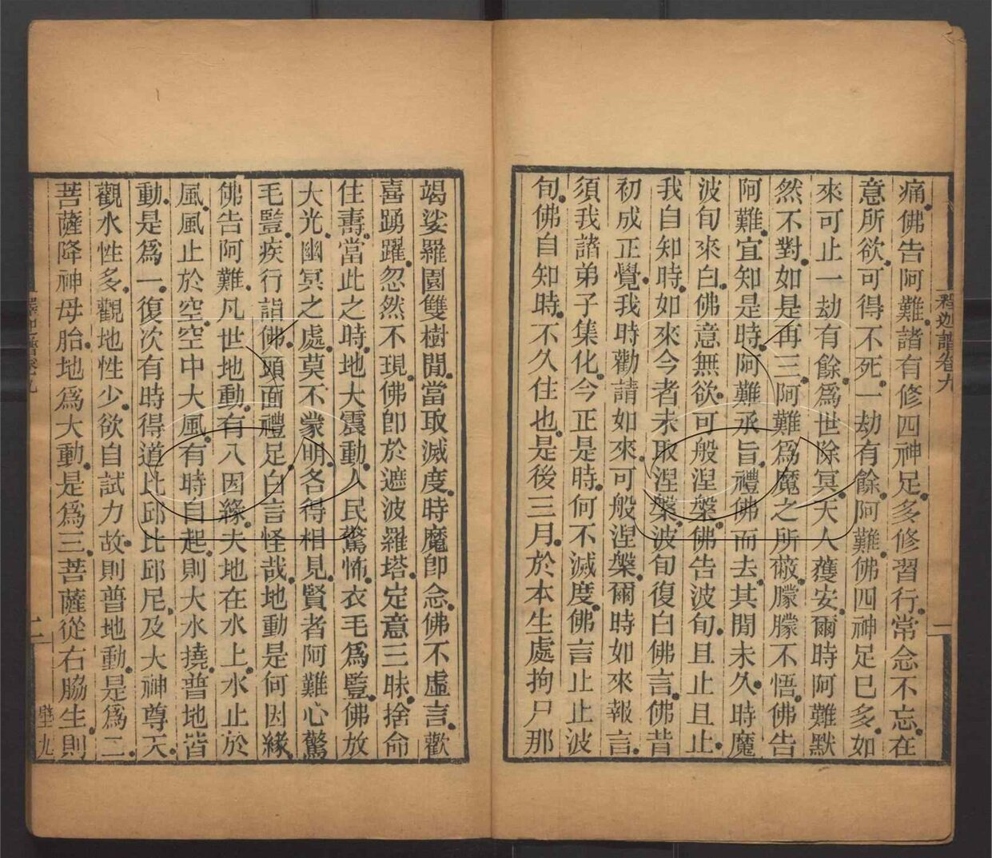 痛佛告阿難諸有修四神足多修習行常念不忘在
意所欲可得不死一劫有餘阿難佛四神足已多如
來可止一劫有餘爲世除冥天人獲安爾時阿難默
然不對如是再三阿難爲魔之所蔽朦朦不悟佛告
阿難宜知是時阿難承旨禮佛而去其閒未久時魔
波旬來白佛意無欲可般涅槃佛告波旬且止且止
我自知時如來今者未取涅槃波旬復白佛言佛昔
初成正覺我時勸請如來可般涅槃爾時如來報言
須我諸弟子集化今正是時何不滅度佛言止止波
旬佛自知時不久住也是後三月於本生處拘尸那
釋迦譜卷九
一
竭娑羅園雙樹閒當取滅度時魔卽念佛不虛言歡
喜踴躍忽然不現佛卽於遮波羅塔定意三昧捨命
住壽當此之時地大震動人民驚怖衣毛爲豎佛放
大光幽冥之處莫不蒙明各得相見賢者阿難心驚
毛豎疾行詣佛頭面禮足白言怪哉地動是何因緣
佛告阿難凡世地動有八因緣夫地在水上水止於
風風止於空空中大風有時自起則大水撓普地皆
動是爲一復次有時得道比邱比邱尼及大神尊天
觀水性多觀地性少欲自試力故則普地動是爲二
菩薩降神母胎地爲大動是爲三菩薩從右脇生則
釋迦譜卷九
二